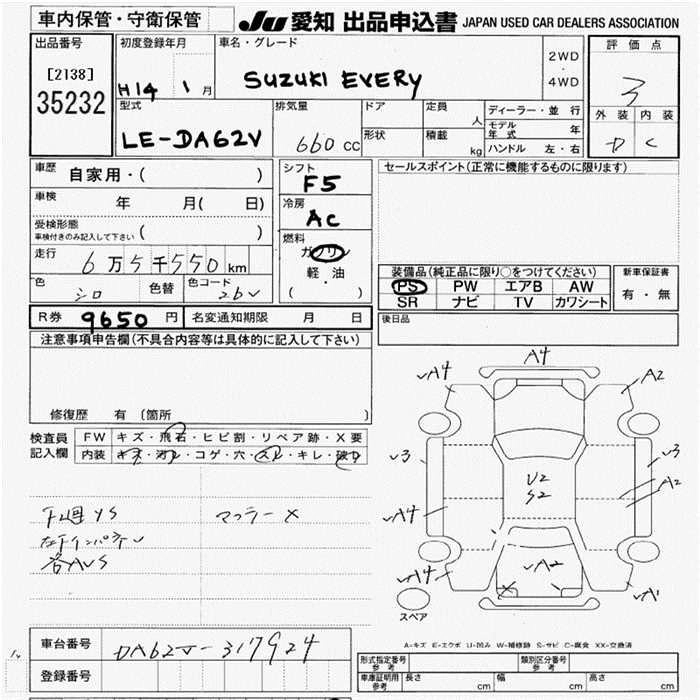 車内保管・守衛保管
JU 愛知 出品申込書 JAPAN USED CAR DEALERS ASSOCIATION
出品番号
[2138]
35232
初度登録年月
H14 1 月
車名・グレード
SUZUKI EVERY
2WD
・
4WD
評価点
3
外装 内装
D C
型式
LE-DA62V
排気量
660 cc
ドア
定員 人
形状
積載 kg
ディーラー・並行
モデル年式 年
ハンドル 左・右
車歴 自家用・( )
車検 年 月( 日)
受検形態
車検付きのみ記入して下さい ( )
走行 6万5千550 km
色 シロ 色替 色コード 26V
シフト
F5
冷房
AC
燃料
ガソリン
軽・油
( )
セールスポイント(正常に機能するものに限ります)
装備品(純正品に限り○をつけてください)
PS PW エアB AW
SR ナビ TV カワシート
新車保証書
有・無
R券 9650 円 名変通知期限 月 日
後日品
注意事項申告欄(不具合内容等は具体的に記入して下さい)
修復歴 有 (箇所 )
検査員
記入欄
FW キズ・飛石・ヒビ割・リペア跡・X要
内装 キズ・汚れ・コゲ・穴・スレ・キレ・破れ
下廻 YS
マフラー X
A4
A4
A2
3
3
U2
S2
A2
A4
A4
A2
A1
スペア
A-キズ E-エクボ U-凹み W-補修跡 S-サビ C-腐食 XX-交換済
車台番号 DA62V-317924
登録番号
型式指定番号
参考
類別区分番号
参考
車庫証明用
参考
長さ cm 幅 cm 高さ cm